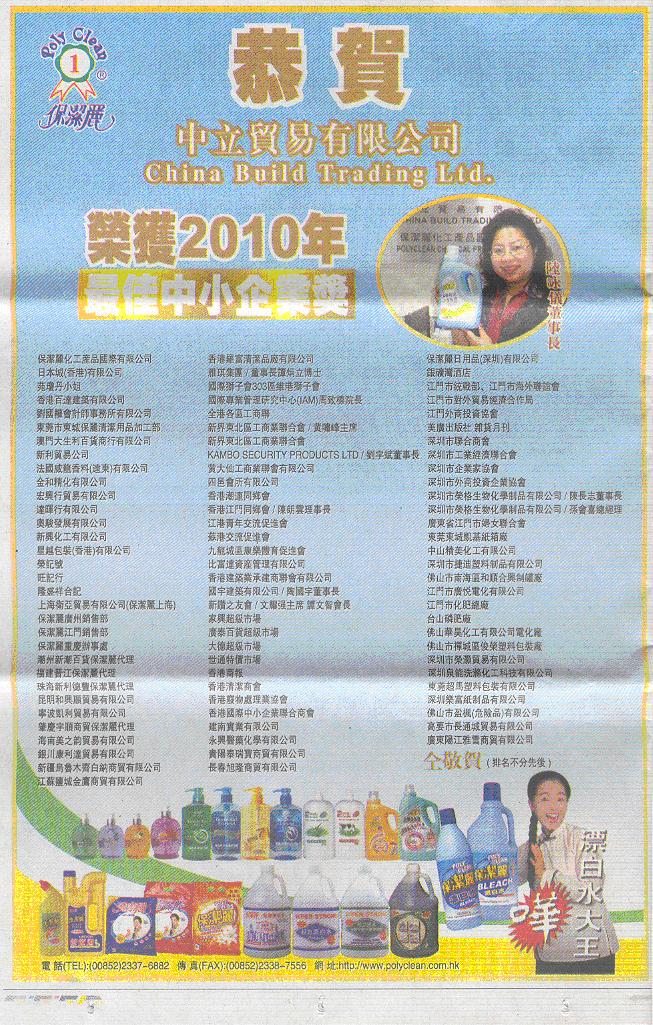 Poly Clean
1
®
保潔麗
恭賀
中立貿易有限公司
China Build Trading Ltd.
榮獲2010年
最佳中小企業獎
CHINA BUILD TRADING LTD
保潔麗化工產品
陳咏儀董事長
保潔麗化工產品國際有限公司
日本城(香港)有限公司
苑瓊丹小姐
香港百達建築有限公司
劉國權會計師事務所有限公司
東莞市東城保麗清潔用品加工部
澳門大生利百貨商行有限公司
新利貿易公司
法國威龍香料(遠東)有限公司
金和精化有限公司
宏興行貿易有限公司
達暉行有限公司
奧駿發展有限公司
新興化工有限公司
星越包裝(香港)有限公司
榮記號
旺記行
隆盛祥合記
上海衛亞貿易有限公司(保潔麗上海)
保潔麗廣州銷售部
保潔麗江門銷售部
保潔麗重慶辦事處
潮州新潮百貨保潔麗代理
福建晉江保潔麗代理
珠海新利德豐保潔麗代理
昆明和興順貿易有限公司
寧波凱利貿易有限公司
肇慶宇順商貿保潔麗代理
海南美之韵貿易有限公司
銀川康利達貿易有限公司
新疆烏魯木齊白納商貿有限公司
江蘇鹽城金鷹商貿有限公司
香港羅富清潔品廠有限公司
雅琪集團 / 董事長譚炳立博士
國際獅子會303區維港獅子會
國際專業管理研究中心(IAM)周致禮院長
全港各區工商聯
新界東北區工商業聯合會 / 黄囑峰主席
新界東北區工商業聯合會
KAMBO SECURITY PRODUCTS LTD / 劉宇斌董事長
黃大仙工商業聯會有限公司
四邑會所有限公司
香港潮連同鄉會
香港江門同鄉會 / 陳朗雲理事長
江港青年交流促進會
蘇港交流促進會
九龍城區康樂體育促進會
比富達資產管理有限公司
香港建築業承建商聯會有限公司
國宇建築有限公司 / 陶國宇董事長
新讚之友會 / 文耀强主席 譚文智會長
家興超級市場
廣泰百貨超級市場
大德超級市場
世通特價市場
香港商報
香港清潔商會
香港廢物處理業協會
香港國際中小企業聯合商會
建南實業有限公司
永興醫藥化學有限公司
貴陽泰瑞寶商貿有限公司
長春旭隆商貿有限公司
保潔麗日用品(深圳)有限公司
銀礦灣酒店
江門市統戰部、江門市海外聯誼會
江門市對外貿易經濟合作局
江門外商投資協會
美廣出版社 雜貨月刊
深圳市聯合商會
深圳市工業經濟聯合會
深圳市企業家協會
深圳市外商投資企業協會
深圳市榮格生物化學制品有限公司 / 陳長志董事長
深圳市榮格生物化學制品有限公司 / 孫會喜總經理
廣東省江門市婦女聯合會
東莞東城凱基紙箱廠
中山精美化工有限公司
深圳市捷迪塑料制品有限公司
佛山市南海區和順合興制罐廠
江門市廣悅電化有限公司
江門市化肥總廠
台山磷肥廠
佛山華昊化工有限公司電化廠
佛山市禪城區俊榮塑料包裝廠
深圳市榮灝貿易有限公司
深圳泉能洗滌化工科技有限公司
東莞超馬塑料包裝有限公司
深圳樂富紙制品有限公司
佛山市盈楓(危險品)有限公司
高要市長通城貿易有限公司
廣東陽江雅雲商貿有限公司
仝敬賀 (排名不分先後)
保潔麗
保潔麗
BLEACH
保潔麗
漂白水大王
嘩
電 話(TEL):(00852)2337-6882 傳 真(FAX):(00852)2338-7556 網 址:http://www.polyclean.com.hk